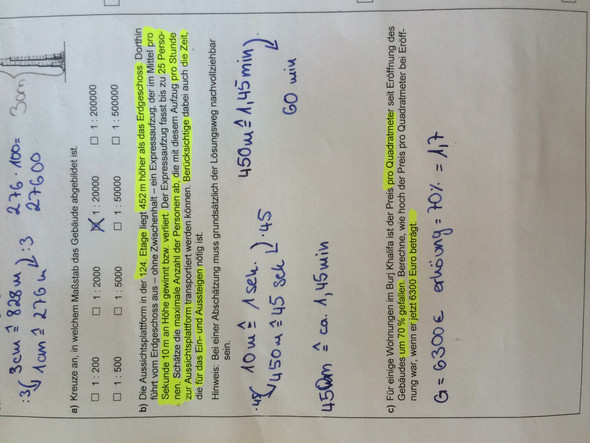 3cm
:3 ( 3cm ≙ 828m ) :3
1cm ≙ 276m
276 · 100 =
27600
a) Kreuze an, in welchem Maßstab das Gebäude abgebildet ist.
☐ 1 : 200 ☐ 1 : 2000 ☒ 1 : 20000 ☐ 1 : 200000
☐ 1 : 500 ☐ 1 : 5000 ☐ 1 : 50000 ☐ 1 : 500000
b) Die Aussichtsplattform in der 124. Etage liegt 452 m höher als das Erdgeschoss. Dorthin
führt vom Erdgeschoss aus – ohne Zwischenhalt – ein Expressaufzug, der im Mittel pro
Sekunde 10 m an Höhe gewinnt bzw. verliert. Der Expressaufzug fasst bis zu 25 Perso-
nen. Schätze die maximale Anzahl der Personen ab, die mit diesem Aufzug pro Stunde
zur Aussichtsplattform transportiert werden können. Berücksichtige dabei auch die Zeit,
die für das Ein- und Aussteigen nötig ist.
Hinweis: Bei einer Abschätzung muss grundsätzlich der Lösungsweg nachvollziehbar
sein.
·45 ( 10m ≙ 1 sek. ) ·45
450m ≙ 45 sek
450m ≙ ca. 1,45min
450m ≙ 1,45min
60 min
c) Für einige Wohnungen im Burj Khalifa ist der Preis pro Quadratmeter seit Eröffnung des
Gebäudes um 70 % gefallen. Berechne, wie hoch der Preis pro Quadratmeter bei Eröff-
nung war, wenn er jetzt 6300 Euro beträgt.
G = 6300€ erhöung = 70% = 1,7